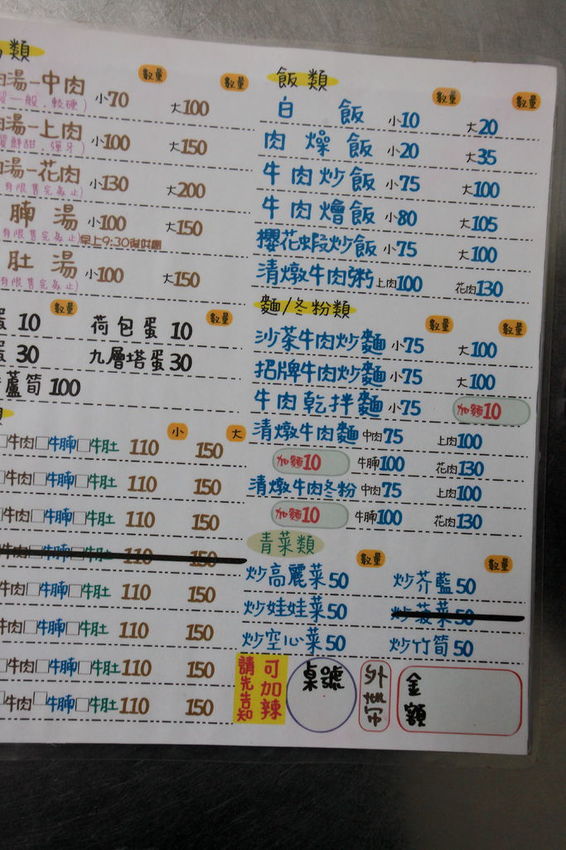 類
數量 數量
肉湯-中肉 小70 大100
一般.較硬)
肉湯-上肉 小100 大150
鮮甜.彈牙)
肉湯-花肉 小130 大200
有限售完為止)
腩湯 小100 大150
有限售完為止) 早上9:30後供應
肚湯 小100 大150
有限售完為止)
數量 數量
蛋 10 荷包蛋 10
蛋 30 九層塔蛋 30
蘆筍 100
小 大
牛肉□牛腩□牛肚 110 150
牛肉□牛腩□牛肚 110 150
牛肉□牛腩□牛肚 110 150
牛肉□牛腩□牛肚 110 150
牛肉□牛腩□牛肚 110 150
牛肉□牛腩□牛肚 110 150
牛肉□牛腩□牛肚 110 150
牛肉□牛腩□牛肚 110 150
飯類
數量 數量
白飯 小10 大20
肉燥飯 小20 大35
牛肉炒飯 小75 大100
牛肉燴飯 小80 大105
櫻花蝦炒飯 小75 大100
清燉牛肉粥 上肉100 花肉130
麵/冬粉類
數量 數量
沙茶牛肉炒麵 小75 大100
招牌牛肉炒麵 小75 大100
牛肉乾拌麵 小75 加麵10
清燉牛肉麵 中肉75 上肉100
加麵10 牛腩100 花肉130
清燉牛肉冬粉 中肉75 上肉100
加麵10 牛腩100 花肉130
青菜類
數量 數量
炒高麗菜 50 炒芥藍 50
炒娃娃菜 50 炒菠菜 50
炒空心菜 50 炒竹筍 50
可加辣
請先告知
桌號
外
金額